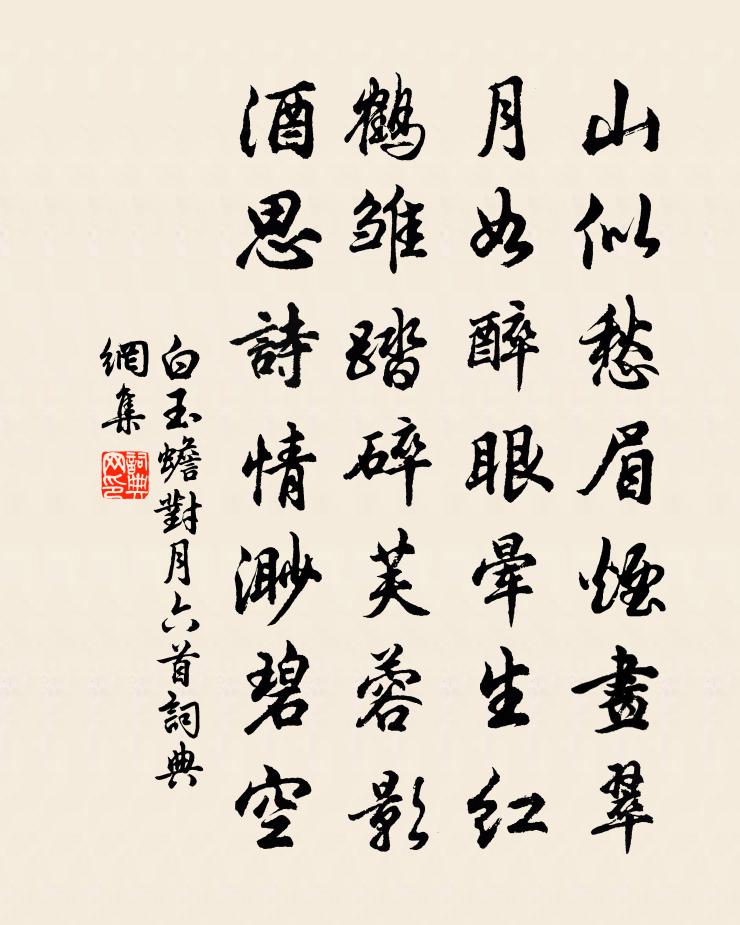 山似愁眉煙畫翠
月如醉眼暈生紅
鶴雛踏碎芙蓉影
酒思詩情渺碧空
白玉蟾對月六首詞典
網集
詞典網印